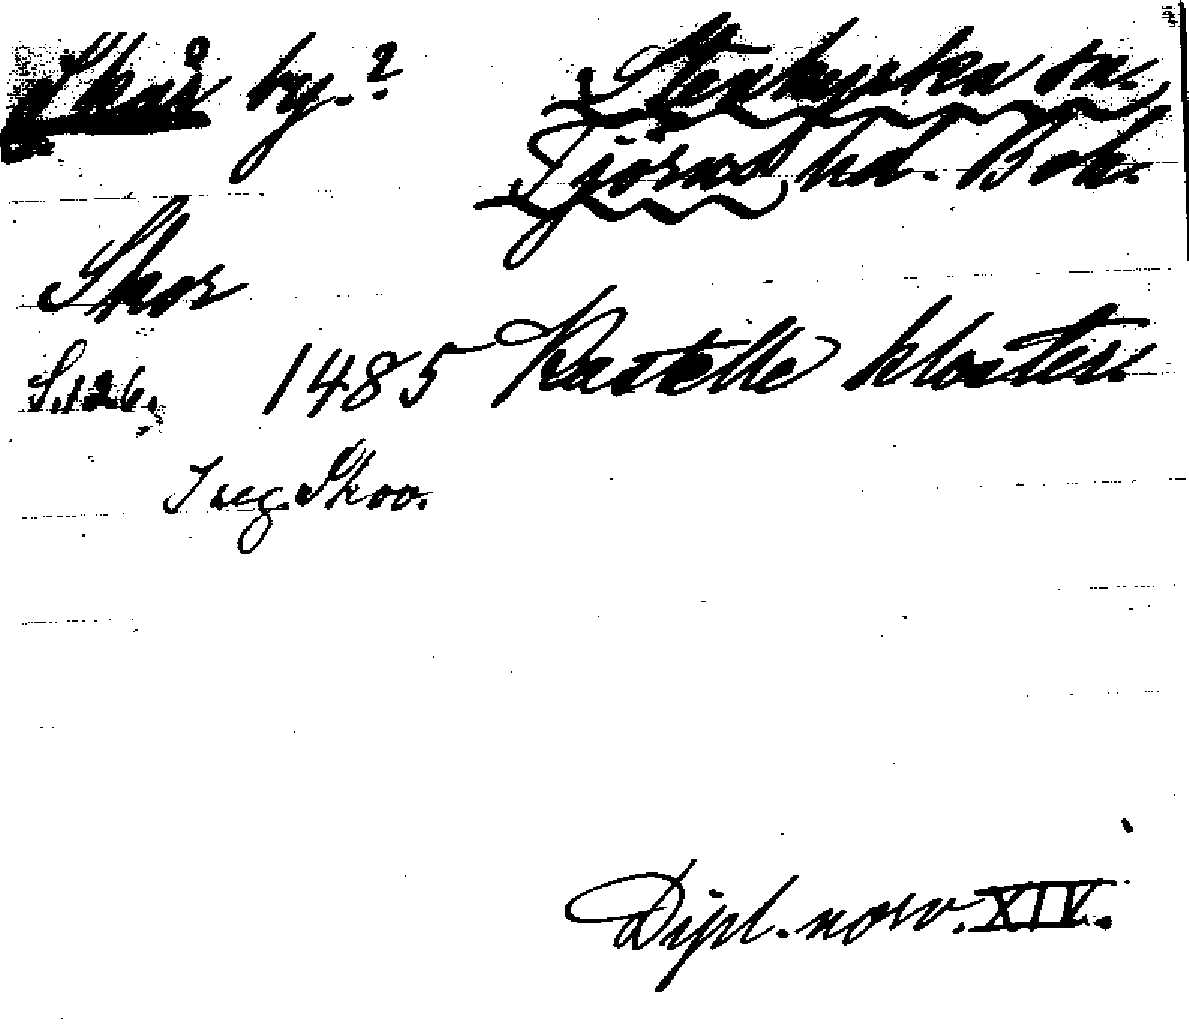 Skår by.? Stenkyrka sn.
Tjörns hd. Boh.
Skor
S. 126. 1485 Kastelle kloster.
I reg. Skoo.
Dipl. norv. XIV.